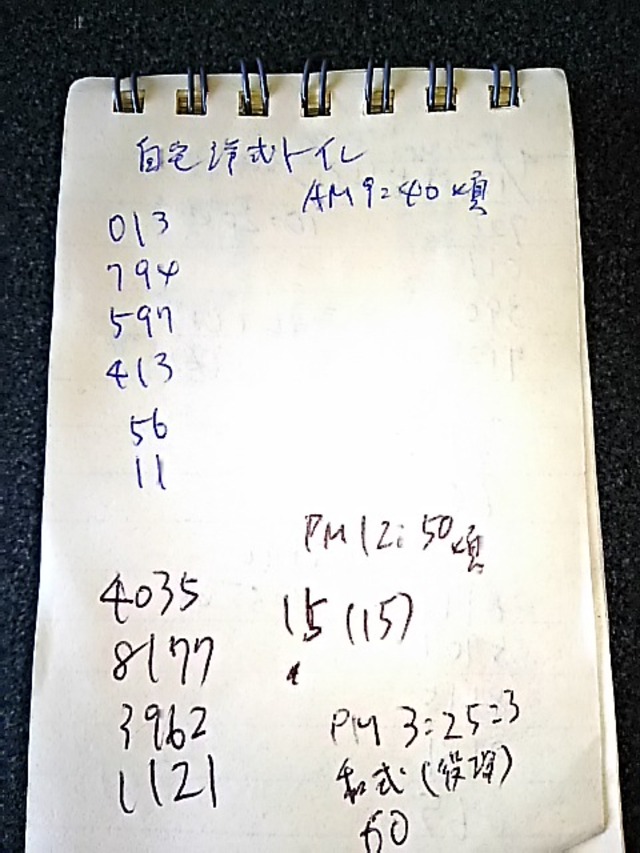 自宅洋式トイレ
AM9:40頃
013
794
597
413
56
11
PM12:50頃
4035
15(15)
8177
3962
PM3:25
1121
和式
60